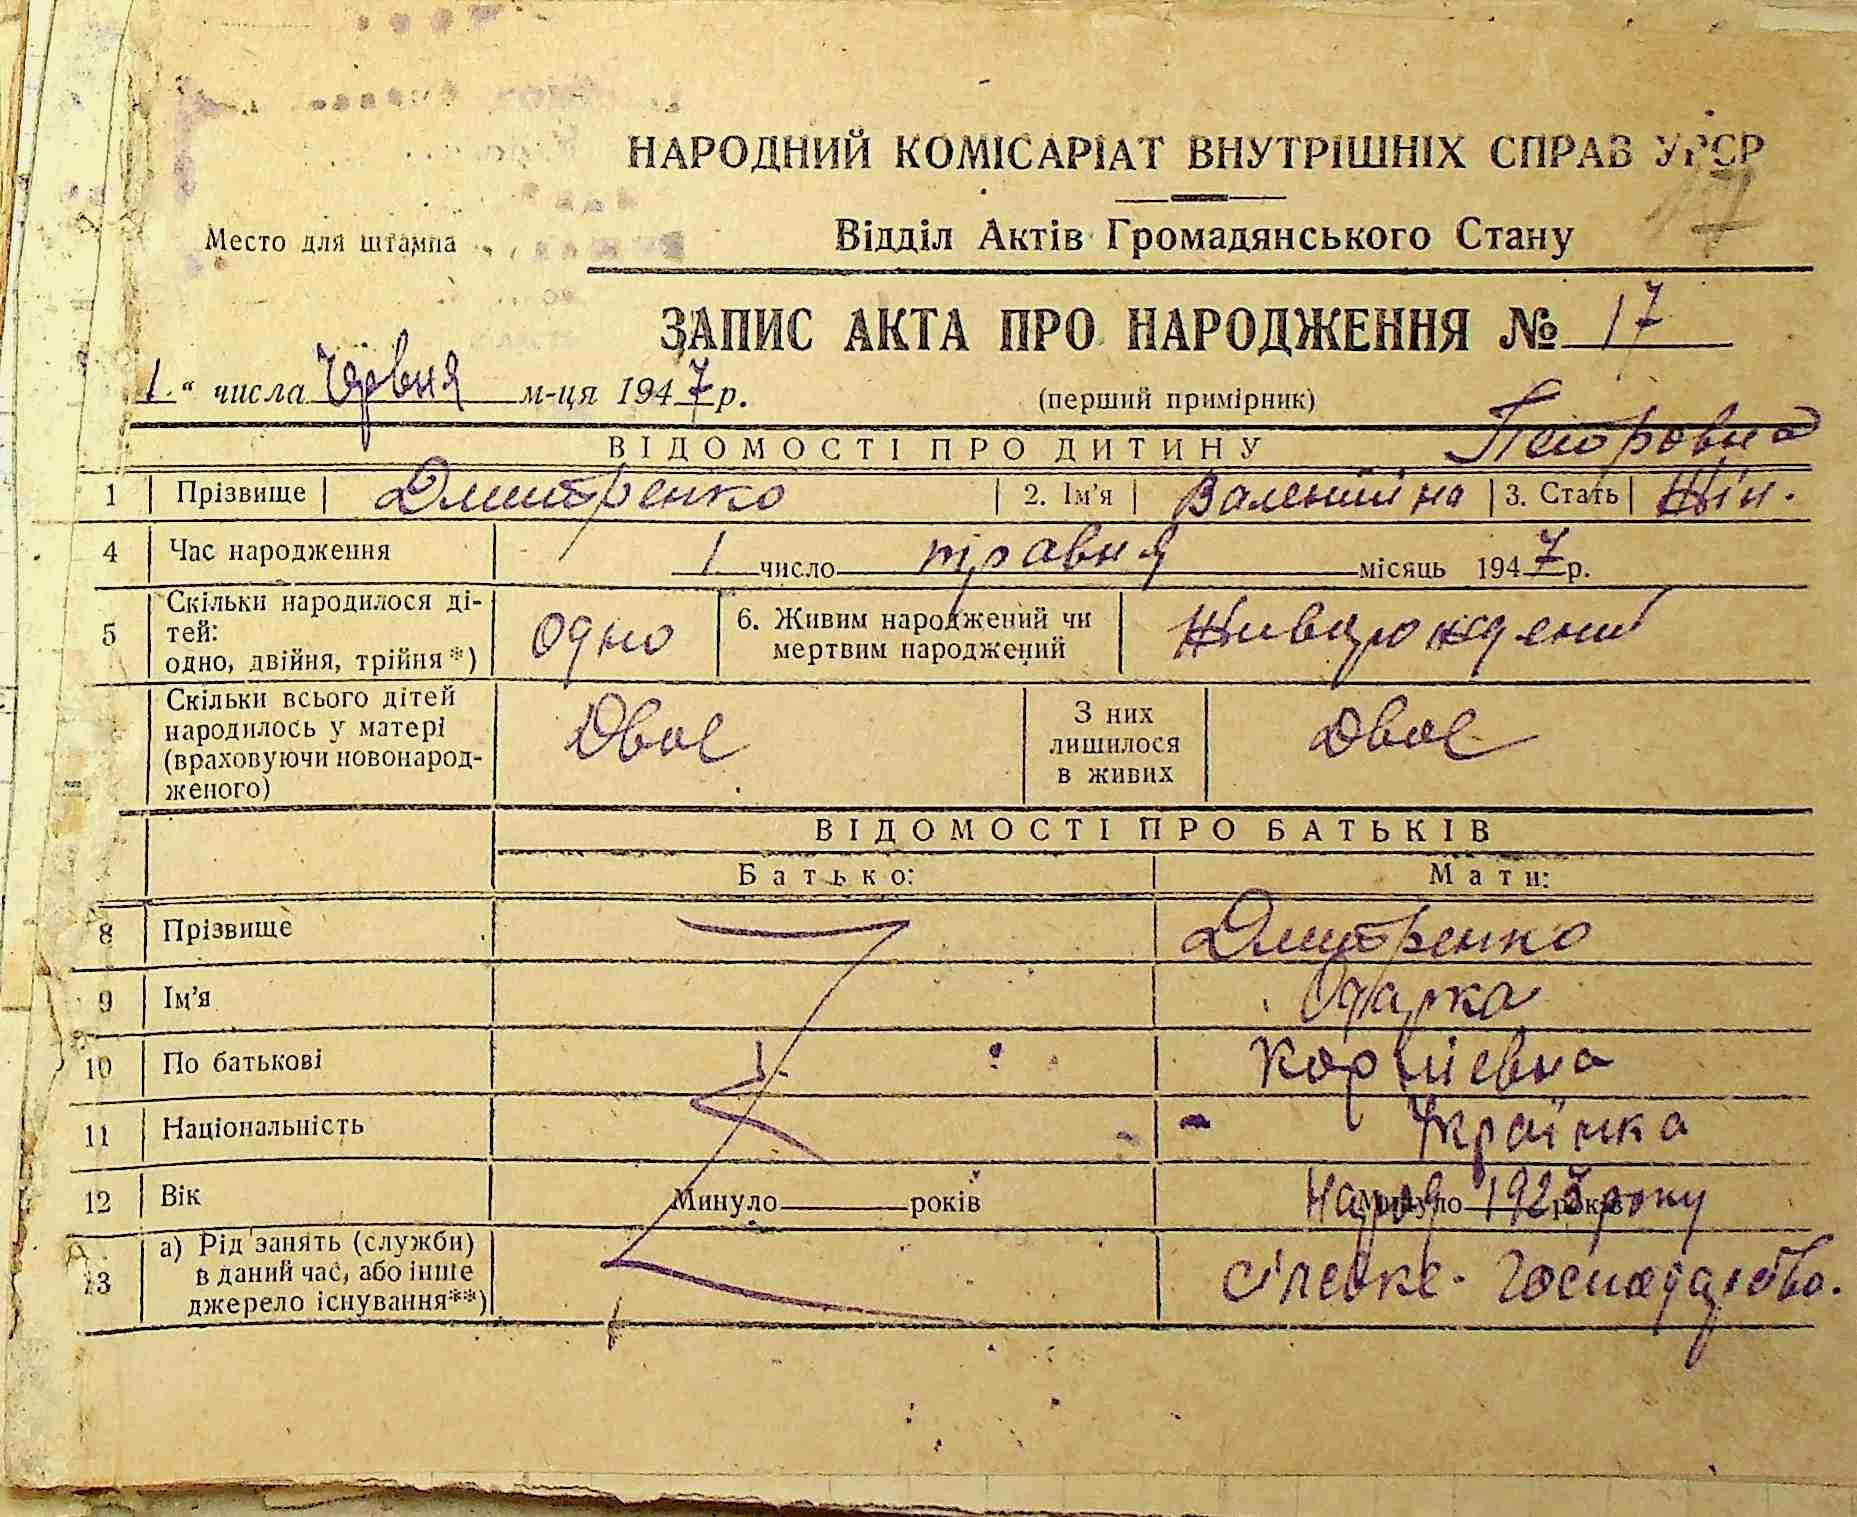 НАРОДНИЙ КОМІСАРІАТ ВНУТРІШНІХ СПРАВ УРСР
17
Место для штампа
Відділ Актів Громадянського Стану
ЗАПИС АКТА ПРО НАРОДЖЕННЯ № 17
1 " числа червня м-ця 1947 р.
(перший примірник)
ВІДОМОСТІ ПРО ДИТИНУ
Петровна
1 Прізвище Дмитренко 2. Ім'я Валентина 3. Стать Жін.
4 Час народження 1 число травня місяць 1947 р.
5 Скільки народилося ді-
тей:
одно, двійня, трійня*)
Одно
6. Живим народжений чи
мертвим народжений
Живорождений
Скільки всього дітей
народилось у матері
(враховуючи новонарод-
женого)
Двое
З них
лишилося
в живих
Двое
ВІДОМОСТІ ПРО БАТЬКІВ
Батько: Мати:
8 Прізвище Дмитренко
9 Ім'я Одарка
10 По батькові Корніевна
11 Національність Українка
12 Вік Минуло років Минуло років
Народ 1923 року
13 а) Рід занять (служби)
в даний час, або інше
джерело існування**)
сільске-господарство.